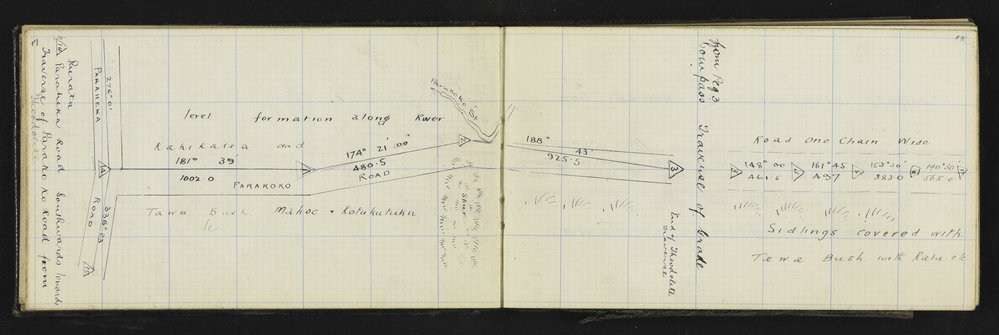 Theodolite
Traverse of Parako Ko Road from
Paraheka Road Southwards towards
Rurata
PARAHEKA
276° 0'
ROAD
338° 23
level formation along River
Kahikatea and
181° 39'
1002.0
PARAKOKO
Tawa Bush Mahoe + Kotukutuku
174° 21' 00"
480.5
ROAD
Parakoko
Spur
188° 43'
925.5
3
End of Theodolite
Traverse
Compass Traverse of Grade
from Peg 3
18
Road One Chain Wide
148° 00
461.6
161° 45
497
153° 30'
383.0
140° 30'
565.0
Sidlings covered with
Tawa Bush with Rata etc